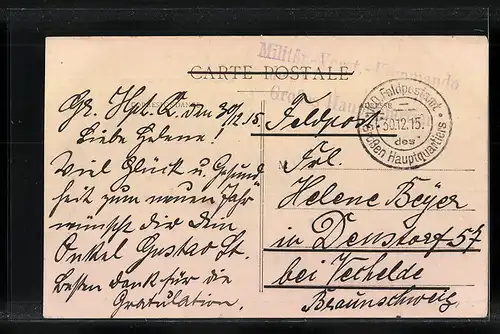 CARTE POSTALE
Militär-Forst-Kommando
Großes Hau
Feldpostamt
30.12.15.
des
Großen Hauptquartiers
Gr. Hpt. Q. den 30/12.15
Liebe Helene!
Viel Glück u. Gesund
heit zum neuen Jahr
wünscht dir dein
Onkel Gustav St.
Besten Dank für die
Gratulation.
Feldpost
Frl.
Helene Beyer
in Denstorf 57
bei Vechelde
Braunschweig